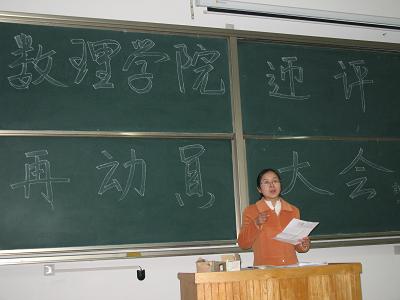 数理学院 迎评
再动员 大会